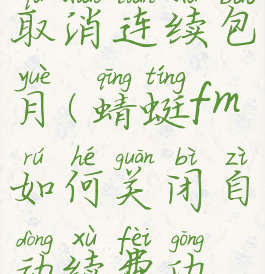 取消连续包
yuè qīng tíng
月(蜻蜓fm
rú hé guān bì zì
如何关闭自
dòng xù fèi gōng
动续费功